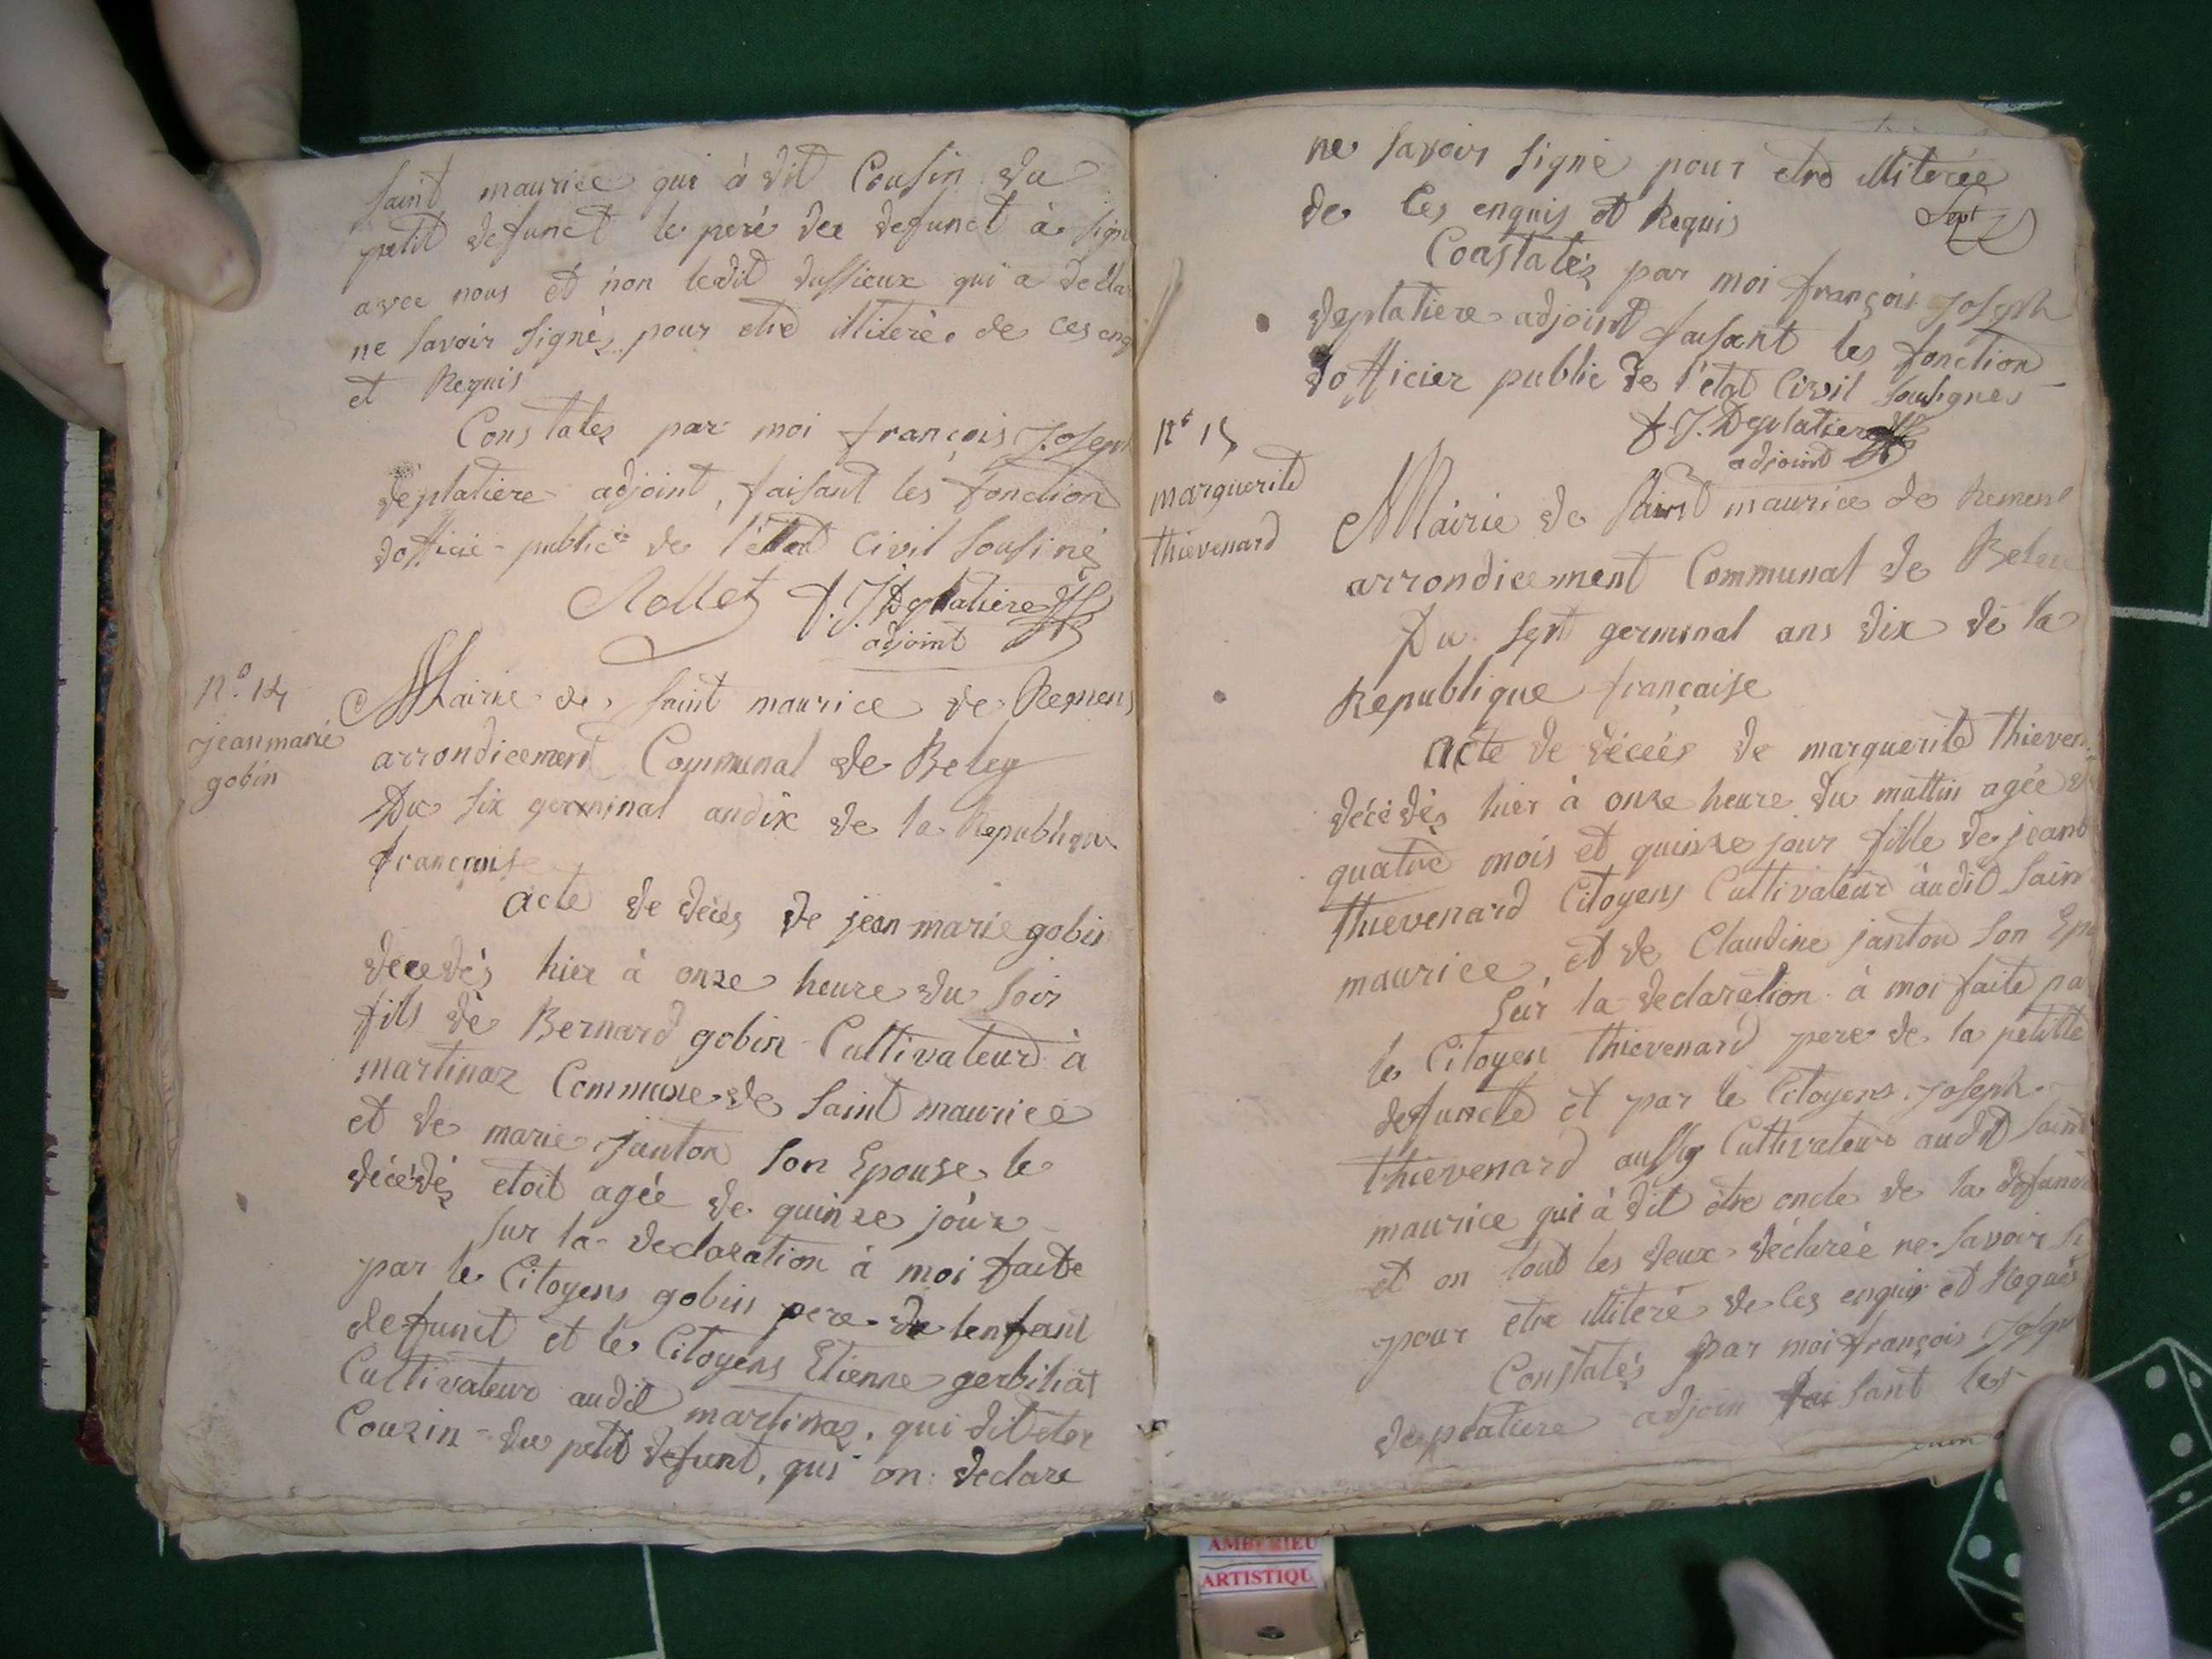 saint maurice qui à dit Cousin du
petit defunct le peré dee defunct à sign
avec nous et non ledit dussieux qui a decla
ne savoir signéz pour etre illiteré de ces enq
et Requis
Constatez par moi françois Joseph
deplatiere adjoint, faisant les fonction
dofficié public de l'état Civil sousiné
Rollet f. J. Deplatiere
adjoint
n.o 14
jean marie
gobin
Mairie de saint maurice de Remens
arrondicement Communal de Beley
Du six germinal an dix de la Republique
française
acte de décés de jean marie gobin
décedés hier à onze heure du soir
fils de Bernard gobin Cultivateur à
martinaz Commune de saint maurice
et de marie janton son Epouse le
décédéz etoit agée de quinze jour
sur la declaration à moi faite
par le Citoyens gobin pere de lenfant
defunct et le Citoyens Etienne gerbihat
Cultivateur audit martinaz, qui dit eter
Couzin du petit defunt, qui on declare
ne savoir signé pour etre illiterée
de ces enquis et Requis
Constatéz par moi françois Joseph
deplatiere adjoint faisant les fonction
dofficier public de l'etat Civil sousignes
f. J. Deplatiere
adjoint
n° 15
marguerite
thievenard
Mairie de saint maurice de Remens
arrondicement Communal de Beley
Du sept germinal ans dix de la
Republique française
acte de décés de marguerite thieven
décédés hier à onze heure du mattin agée de
quatre mois et quinze jour fille de jean
thievenard Citoyens Cultivateur audit sain
maurice, et de Claudine janton son Epo
sur la declaration à moi faite pa
le Citoyen thievenard pere de la petitte
defuncte et par le Citoyens Joseph
thievenard aussy Cultivateur audit saint
maurice qui à dit être oncle de la defunct
et on tout les deux déclarée ne savoir si
pour etre illiteré de ces enquis et Requis
Constatés par moi françois Joseph
deplatiere adjoin faisant les
AMBERIEU
ARTISTIQU